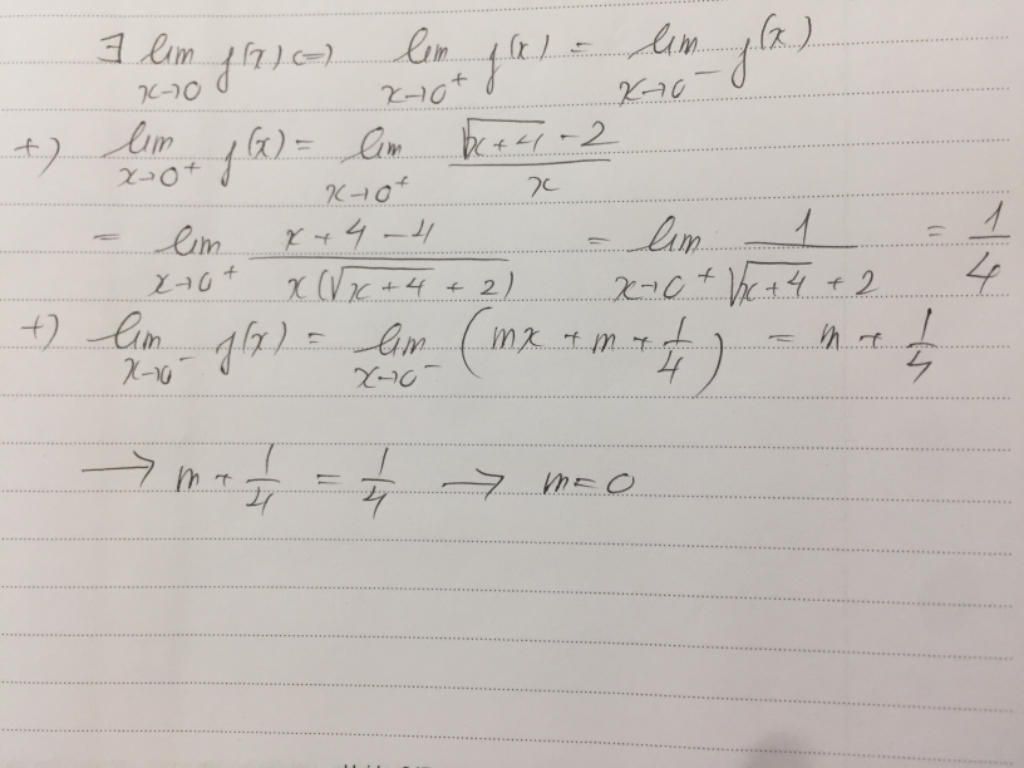 ∃ lim x→0 f(x) <=> lim x→0⁺ f(x) = lim x→0⁻ f(x)
+) lim x→0⁺ f(x) = lim x→0⁺ (√(x+4) - 2)/x
= lim x→0⁺ (x+4-4)/(x(√(x+4) + 2)) = lim x→0⁺ 1/(√(x+4) + 2) = 1/4
+) lim x→0⁻ f(x) = lim x→0⁻ (mx + m + 1/4) = m + 1/4
→ m + 1/4 = 1/4 → m = 0